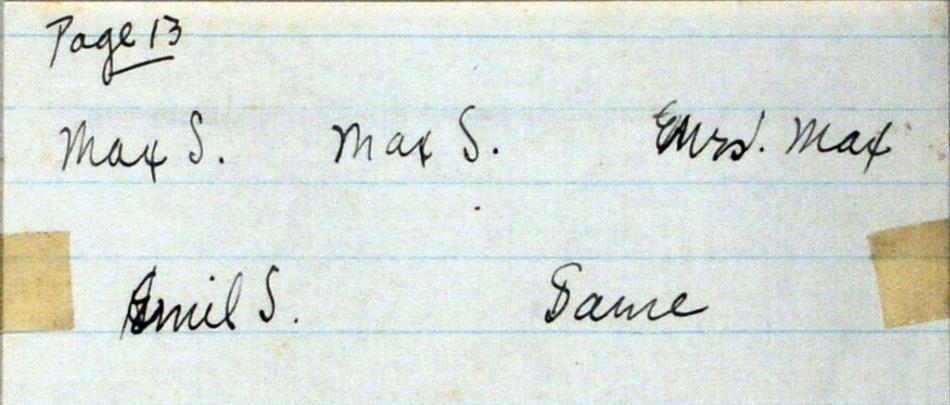 Page 13
Max S. Max S. Mrs. Max
Emil S. Same